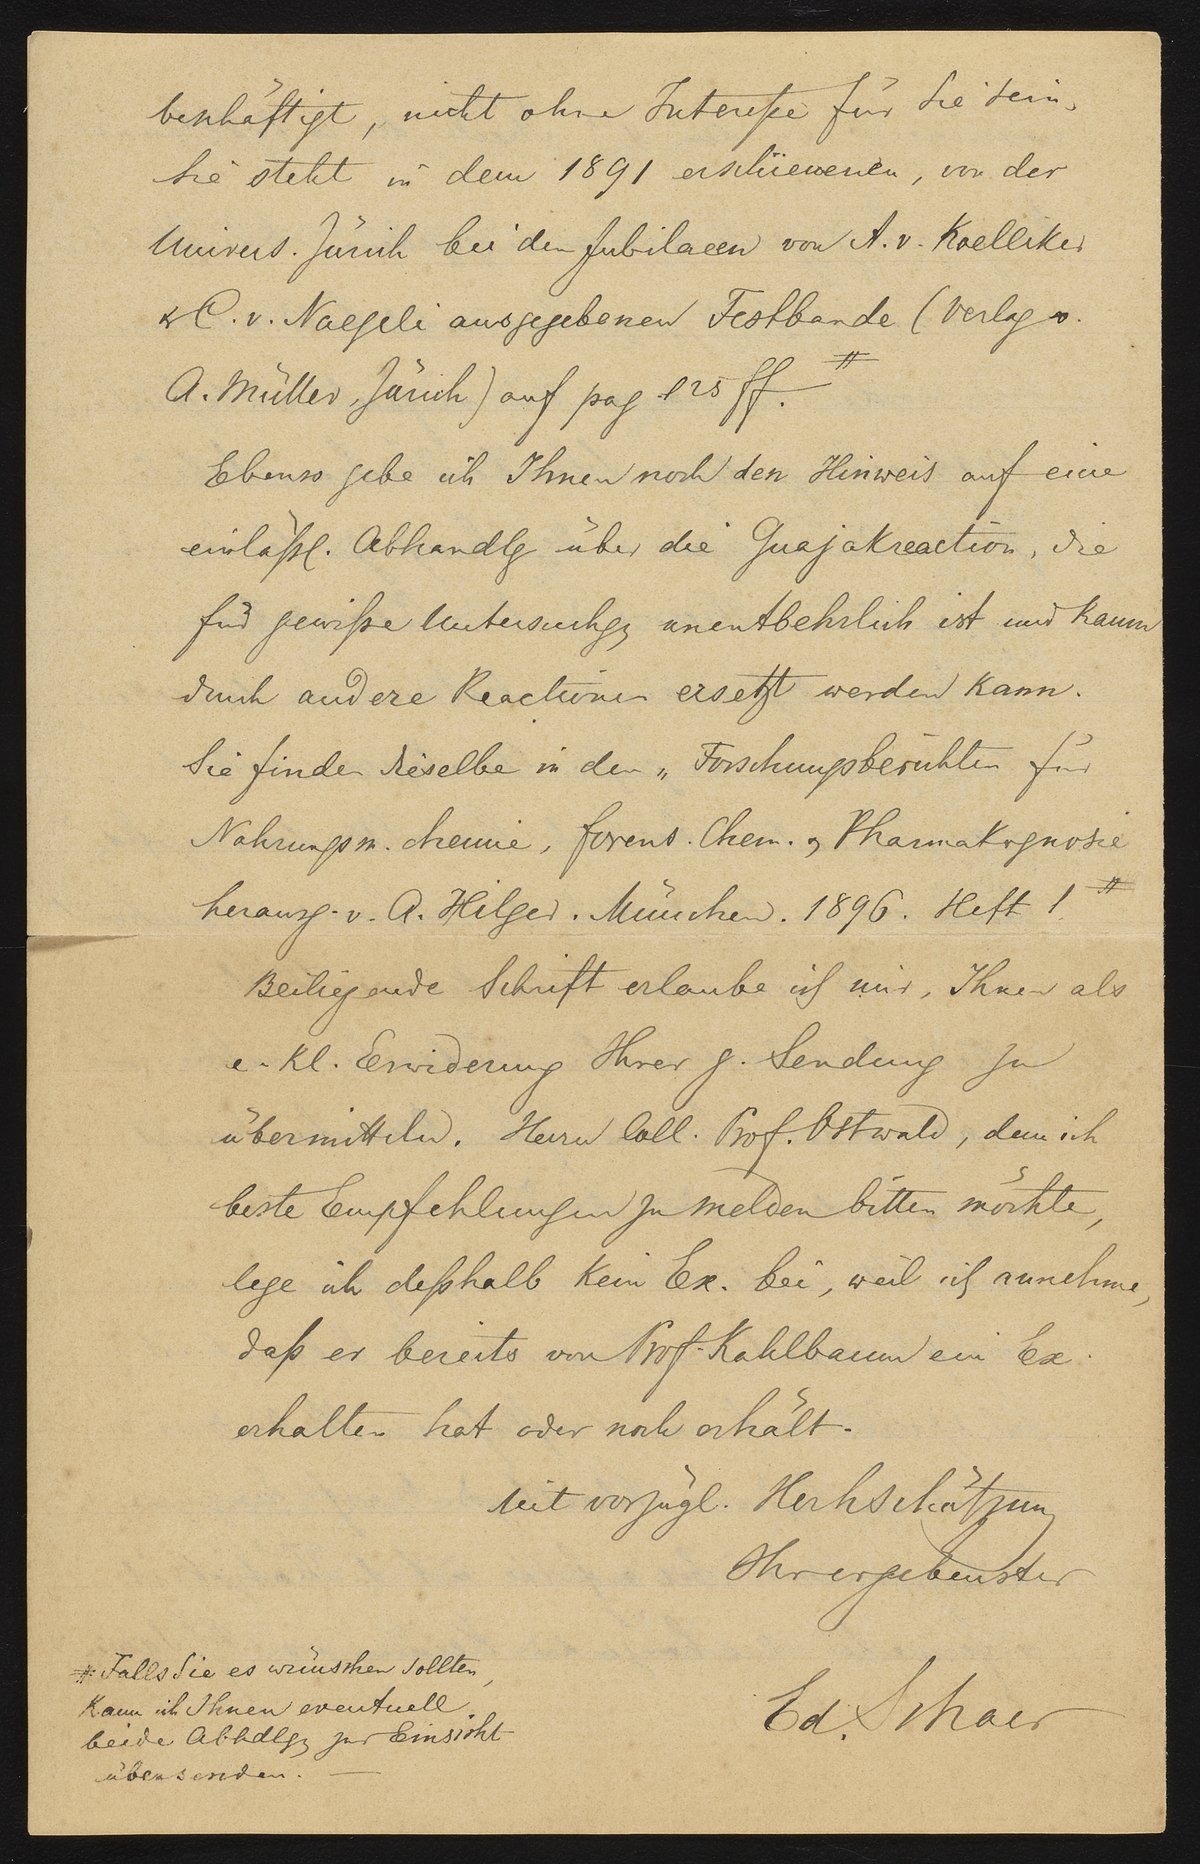 beschäftigt, nicht ohne Intereße für Sie sein.
Sie steht in dem 1891 erschienenen, von der
Univers. Zürich bei den Jubilaeen von A. v. Koelliker
& C. v. Naegeli ausgegebenen Festbande (Verlag v.
A. Müller, Zürich) auf pag 125 ff. #
Ebenso gebe ich Ihnen noch den Hinweis auf eine
einläßl. Abhandlg über die Guajakreaction, die
für gewiße Untersuchg unentbehrlich ist und kaum
durch andere Reactionen ersetzt werden kann.
Sie finden dieselbe in den „Forschungsberichten für
Nahrungsm. chemie, forens. Chem. & Pharmakognosie
herausg. v. A. Hilger. München. 1896. Heft 1 #
Beiliegende Schrift erlaube ich mir, Ihnen als
e. kl. Erwiderung Ihrer g. Sendung zu
übermitteln. Herrn Coll. Prof. Ostwald, dem ich
beste Empfehlungen zu melden bitten möchte,
lege ich deßhalb kein Ex. bei, weil ich annehme,
daß er bereits von Prof. Kahlbaum ein Ex.
erhalten hat oder noch erhält.
Mit vorzügl. Hochschätzung
Ihr ergebenster
Ed. Schaer
# Falls Sie es wünschen sollten,
kann ich Ihnen eventuell
beide Abhdlg zur Einsicht
übersenden. —